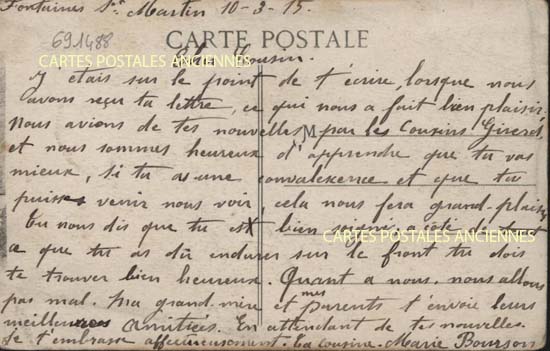 Fontaines St Martin 10-3-15.
691488
CARTE POSTALE
CARTES POSTALES ANCIENNES
Cher Cousin.
J'étais sur le point de t'écrire, lorsque nous
avons reçu ta lettre, ce qui nous a fait bien plaisir,
Nous avions de tes nouvelles par les Cousins Girerd,
et nous sommes heureux d'apprendre que tu vas
mieux, si tu as une convalexence et que tu
puisse venir nous voir, cela nous fera grand plaisir
Tu nous dis que tu est bien
CARTES POSTALES ANCIENNES
ce que tu as dû endurer sur le front tu dois
te trouver bien heureux. Quant a nous, nous allons
pas mal. Ma grand-mère et mes parents t'envoie leurs
meilleures amitiées. En attendant de tes nouvelles.
Je t'embrasse affectueusement. Ta cousine. Marie Bourson